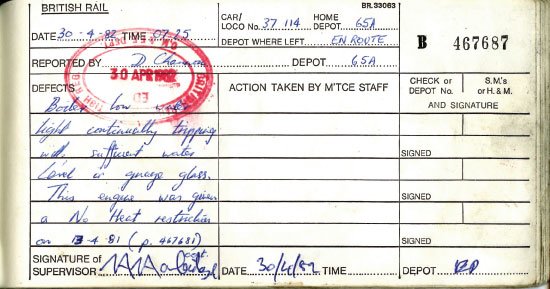 BRITISH RAIL
BR.33063
DATE 30-4-82 TIME 07.25
CAR/LOCO No. 37 114 HOME DEPOT 65A
DEPOT WHERE LEFT EN ROUTE
B 467687
REPORTED BY D. DEPOT 65A
30 APR 1982
DEFECTS
ACTION TAKEN BY M'TCE STAFF
CHECK or DEPOT No.
S.M.'s or H. & M.
AND SIGNATURE
Boiler low water
light continually tripping
with sufficient water
Level in guage glass.
This engine was given
a No Heat restriction
on 13-4-81 (p. 467681)
SIGNED
SIGNED
SIGNED
SIGNATURE of SUPERVISOR
DATE 30/4/82 TIME
DEPOT